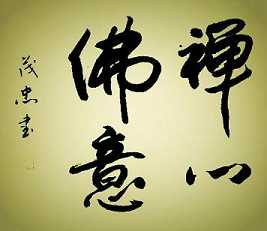 禪心
佛意
茂忠书